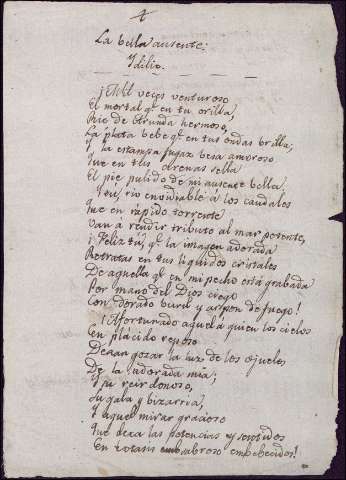 4
La bella ausente:
Idilio.
¡Mil veces venturoso
El mortal qe. en tu orilla,
Rio de Arunda hermoso,
La plata bebe qe. en tus ondas brilla;
Y la estampa fugaz besa amoroso
Que en tus arenas sella
El pie pulido de mi ausente bella!
¡Tú, rio envidiable á los caudales
Que en rápido torrente
Van á rendir tributo al mar potente,
¡Feliz tú, qe. la imagen adorada
Retratas en tus liquidos cristales
De aquella qe. en mi pecho está grabada
Por mano del Dios ciego
Con dorado buril y arpon de fuego!
¡Afortunado aquel á quien los cielos
En plácido reposo
Dejan gozar la luz de los ojuelos
De la adorada mia;
Y su reir donoso,
Su gala y bizarria,
Y aquel mirar gracioso
Que deja las potencias y sentidos
En sabroso embebecidos!